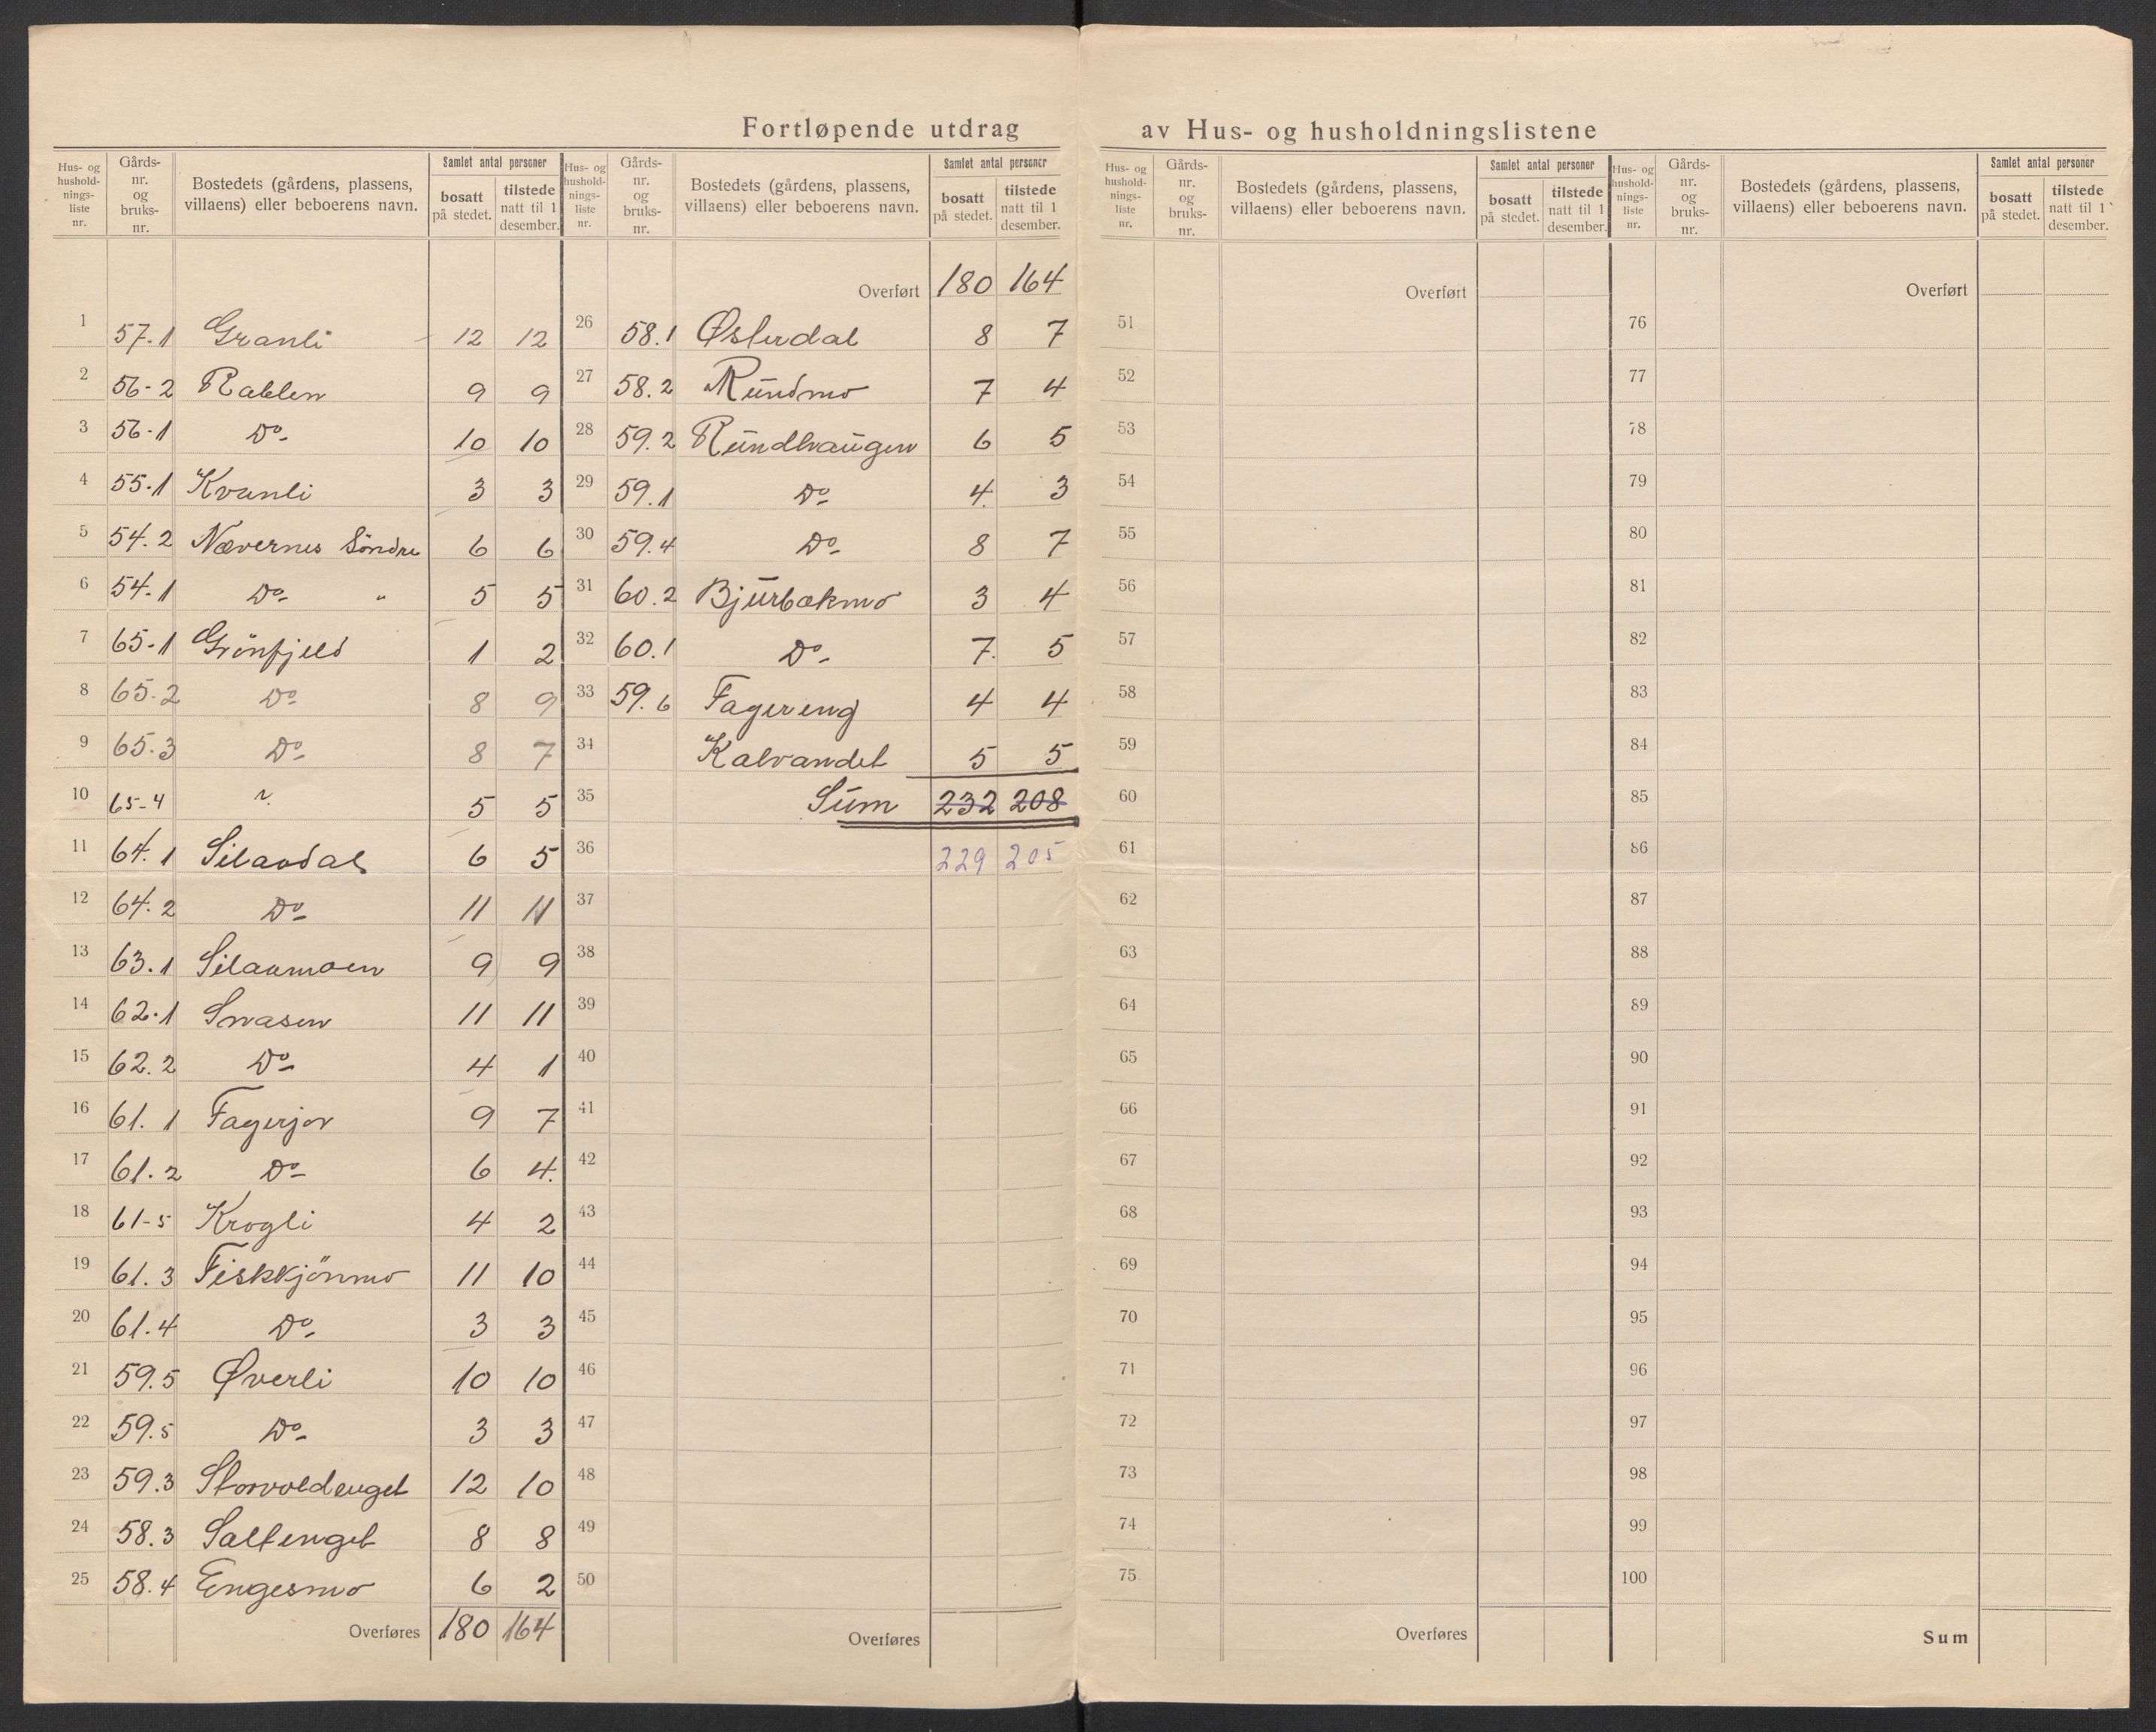 Fortløpende utdrag av Hus- og husholdningslistene
Hus- og husholdnings-liste nr. Gårds-nr. og bruks-nr. Bostedets (gårdens, plassens, villaens) eller beboerens navn. Samlet antal personer bosatt på stedet. tilstede natt til 1 desember.
1 57.1 Granli 12 12
2 56-2 Rabben 9 9
3 56-1 Do- 10 10
4 55.1 Kvanli 3 3
5 54.2 Nævernes Söndre 6 6
6 54.1 Do- " 5 5
7 65.1 Grönfjeld 1 2
8 65.2 Do 8 9
9 65.3 Do- 8 7
10 65-4 5 5
11 64.1 Silaodal 6 5
12 64.2 Do- 11 11
13 63.1 Silaumoen 9 9
14 62.1 Snasen 11 11
15 62.2 Do- 4 1
16 61.1 Fagerjor 9 7
17 61.2 Do- 6 4.
18 61-5 Krogli 4 2
19 61.3 Fiskkjönmo 11 10
20 61.4 Do- 3 3
21 59.5 Øverli 10 10
22 59.5 Do- 3 3
23 59.3 Storvoldenget 12 10
24 58.3 Saltenget 8 8
25 58.4 Engesmo 6 2
Overføres 180 164
Hus- og husholdnings-liste nr. Gårds-nr. og bruks-nr. Bostedets (gårdens, plassens, villaens) eller beboerens navn. Samlet antal personer bosatt på stedet. tilstede natt til 1 desember.
Overført 180 164
26 58.1 Østerdal 8 7
27 58.2 Rundmo 7 4
28 59.2 Rundhaugen 6 5
29 59.1 Do- 4. 3
30 59.4 Do- 8 7
31 60.2 Bjurbækmo 3 4
32 60.1 Do- 7. 5
33 59.6 Fagereng 4 4
34 Kalvandet 5 5
35 Sum 232 208
36 229 205
37
38
39
40
41
42
43
44
45
46
47
48
49
50
Overføres
Hus- og husholdnings-liste nr. Gårds-nr. og bruks-nr. Bostedets (gårdens, plassens, villaens) eller beboerens navn. Samlet antal personer bosatt på stedet. tilstede natt til 1 desember.
Overført
51
52
53
54
55
56
57
58
59
60
61
62
63
64
65
66
67
68
69
70
71
72
73
74
75
Overføres
Hus- og husholdnings-liste nr. Gårds-nr. og bruks-nr. Bostedets (gårdens, plassens, villaens) eller beboerens navn. Samlet antal personer bosatt på stedet. tilstede natt til 1 desember.
Overført
76
77
78
79
80
81
82
83
84
85
86
87
88
89
90
91
92
93
94
95
96
97
98
99
100
Sum